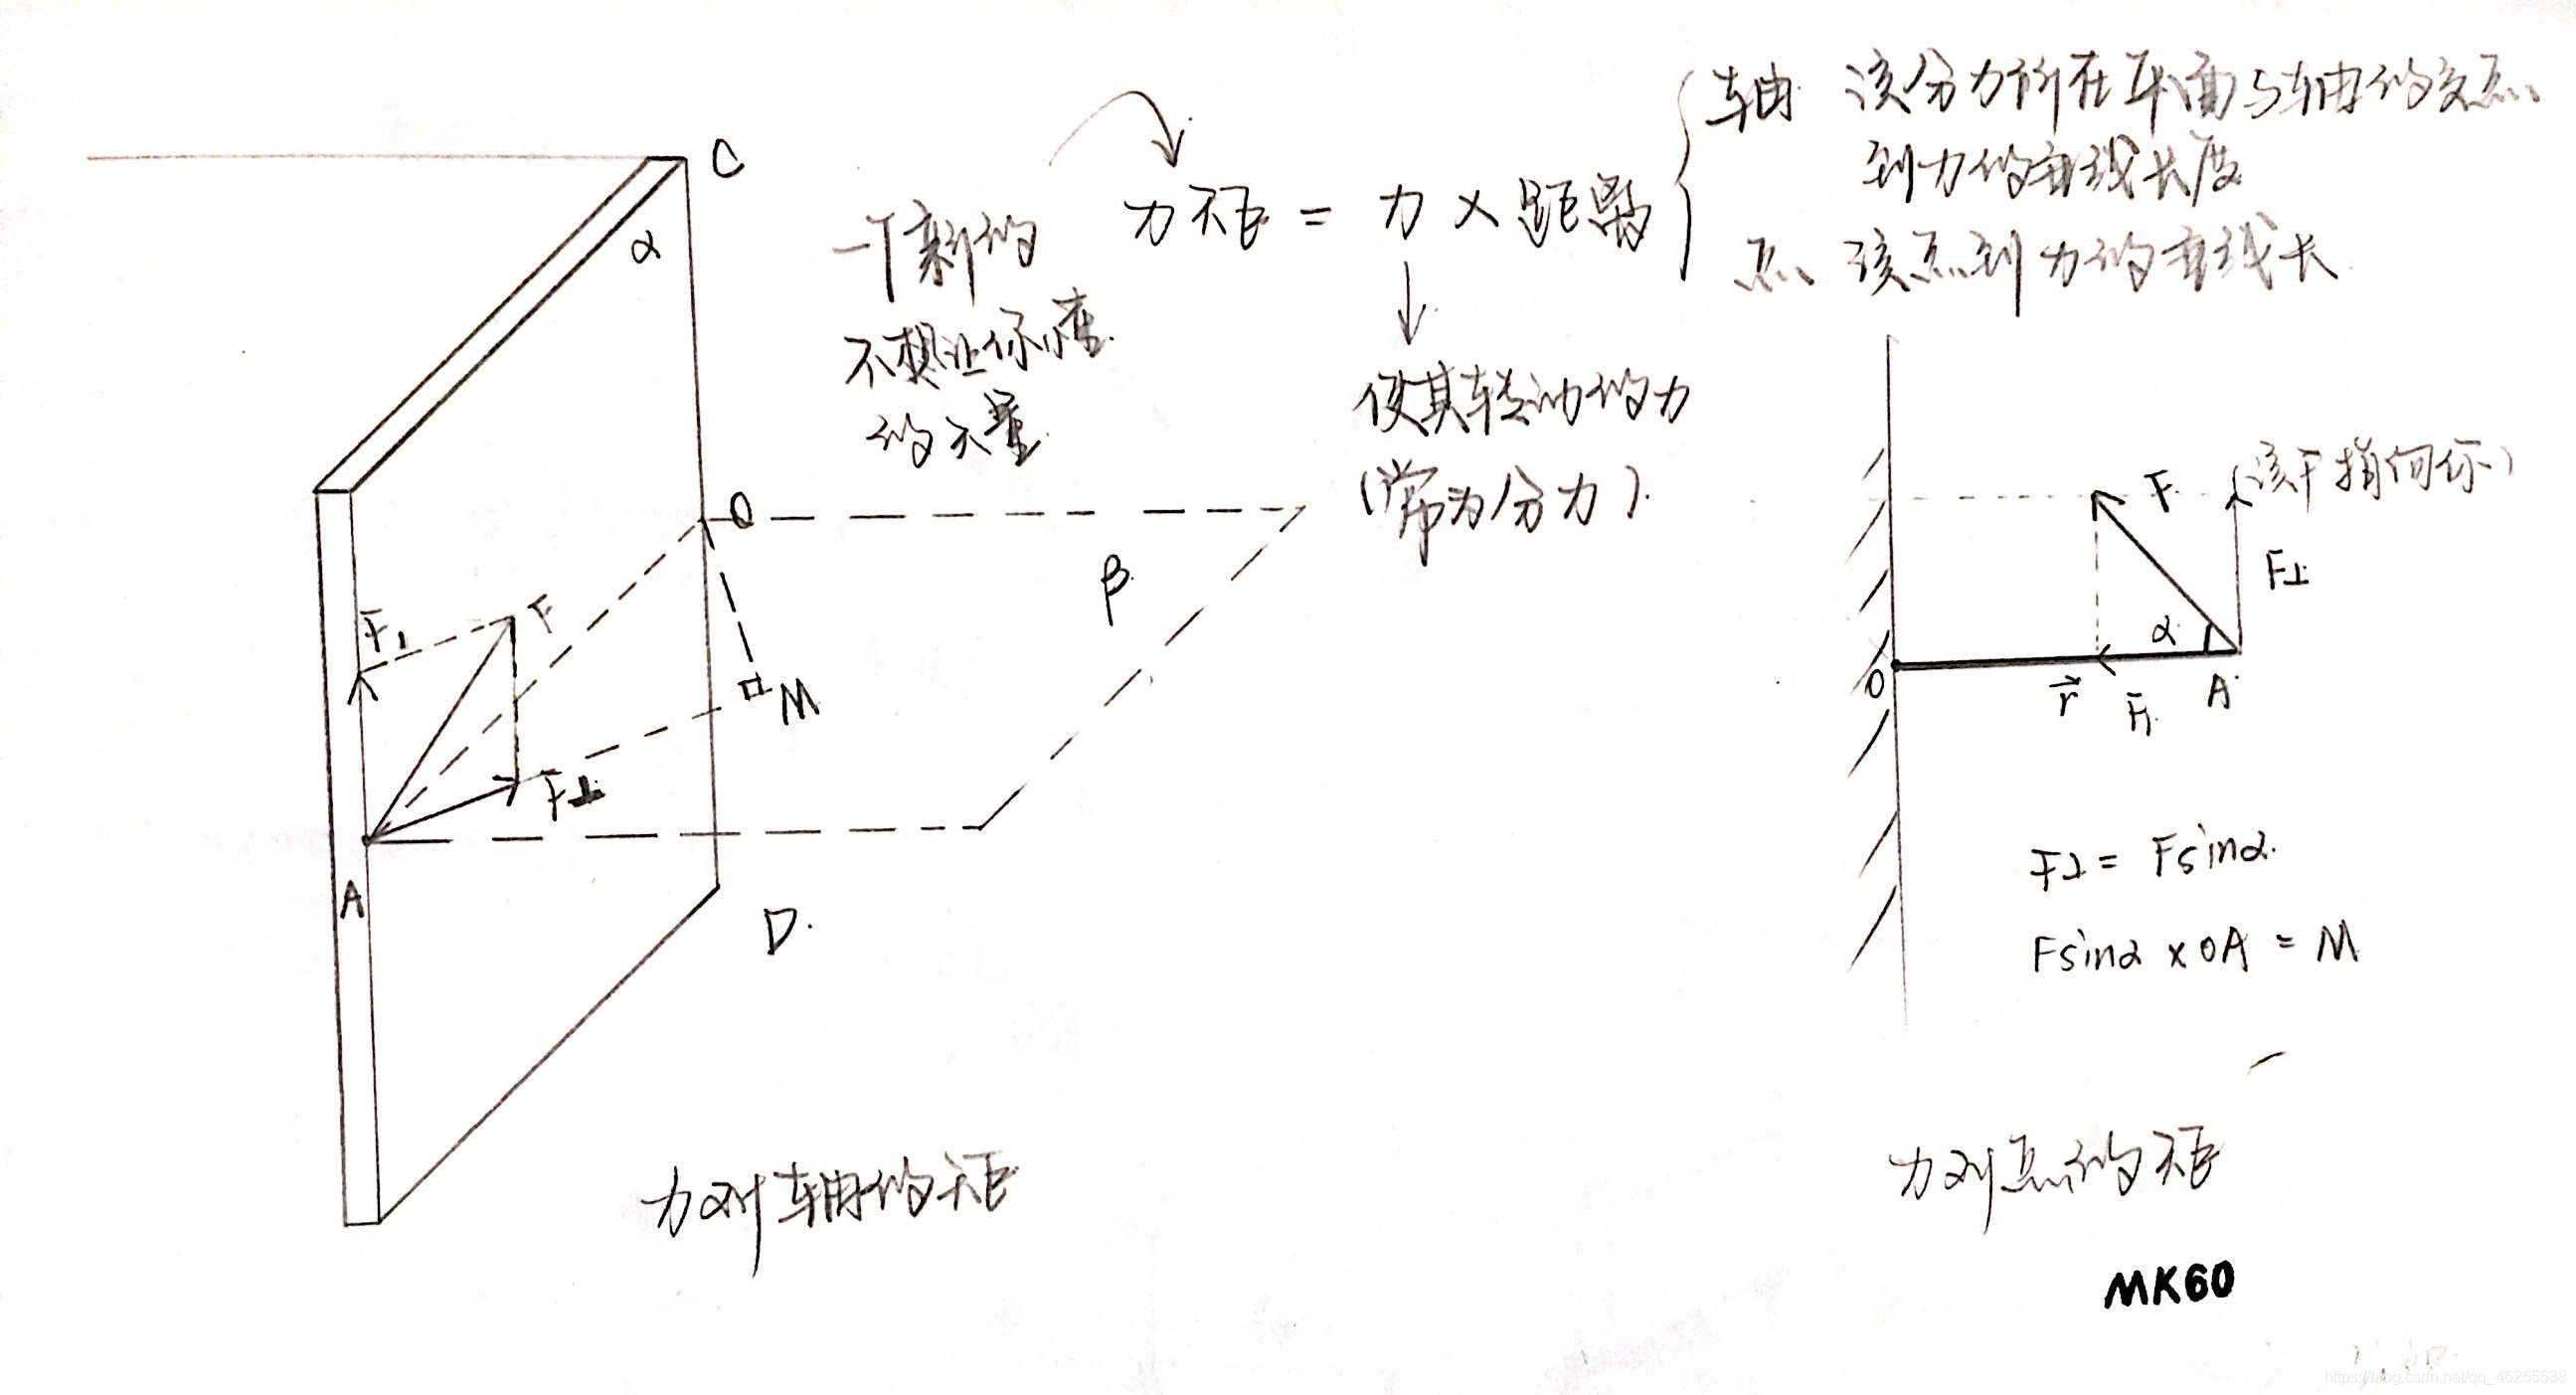 C
α
一个新的
不想让你懂
的矢量
力矩 = 力 × 距离
轴 该分力所在平面与轴的交点
到力的垂线长度
点 该点到力的垂线长
使其转动的力
(常为分力)
O
β
F₁
F
F⊥
M
A
D
力对轴的矩
F
F⊥
α
O
r
F₁
A
F⊥ = Fsinα
Fsinα × OA = M
力对点的矩
MK60
https://blog.csdn.net/qq_46255538